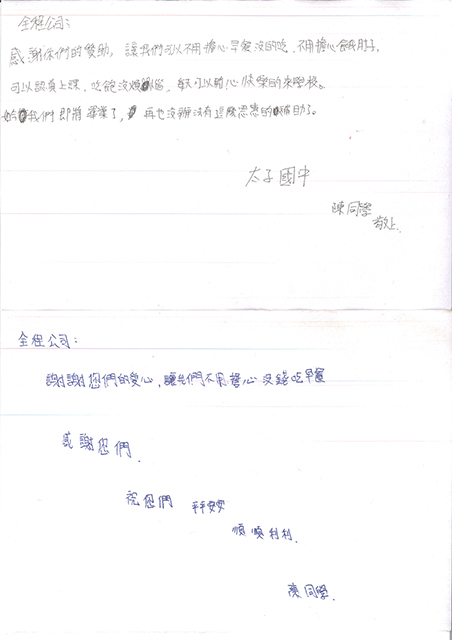 全程公司：
感謝你們的幫助，讓我們可以不用擔心早餐沒的吃，不用擔心餓肚子，
可以認真上課，吃飽沒煩惱，每天可以開心快樂的來學校。
我們即將畢業了，再也沒辦沒有這麼恩惠的補助了。
太子國中
陳同學
敬上.
全程公司：
謝謝您們的愛心，讓我們不用擔心沒錢吃早餐
感謝您們.
祝您們 平平安安
順順利利.
陳同學.